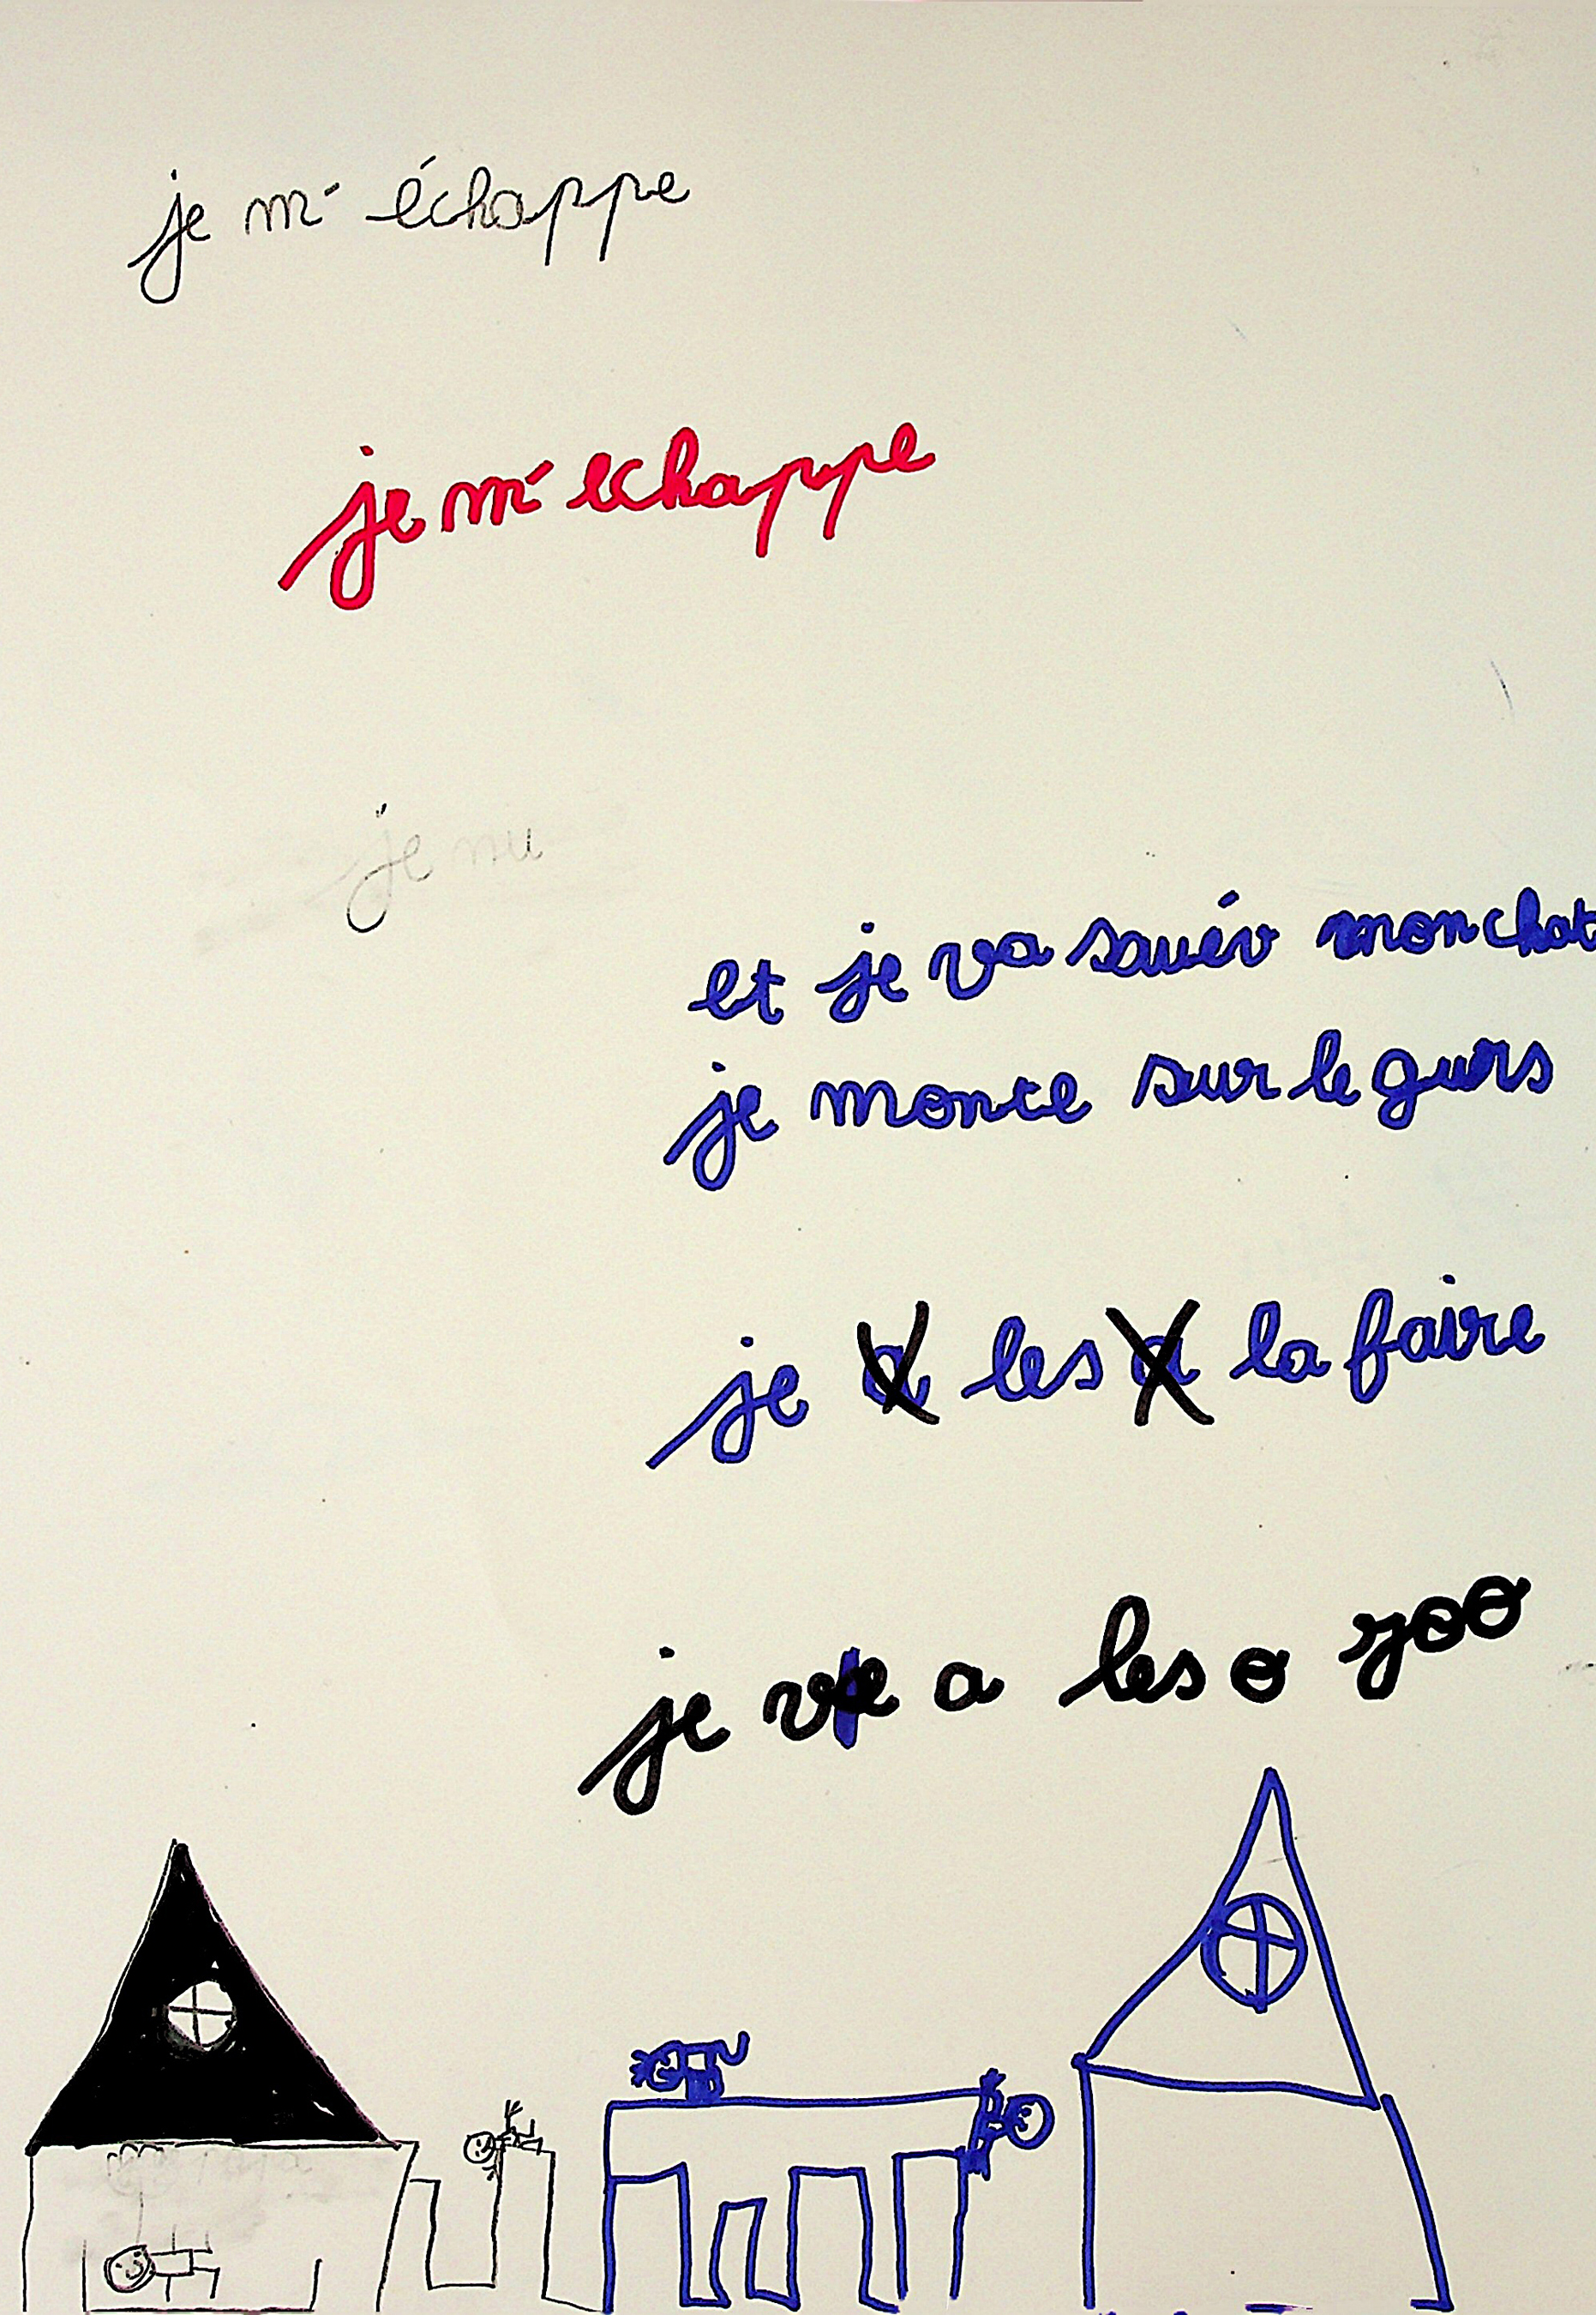 je m'échappe
je m'echappe
je
et je va sauév mon chat
je monte sur le gurs
je a les a la faire
je ve a les o zoo